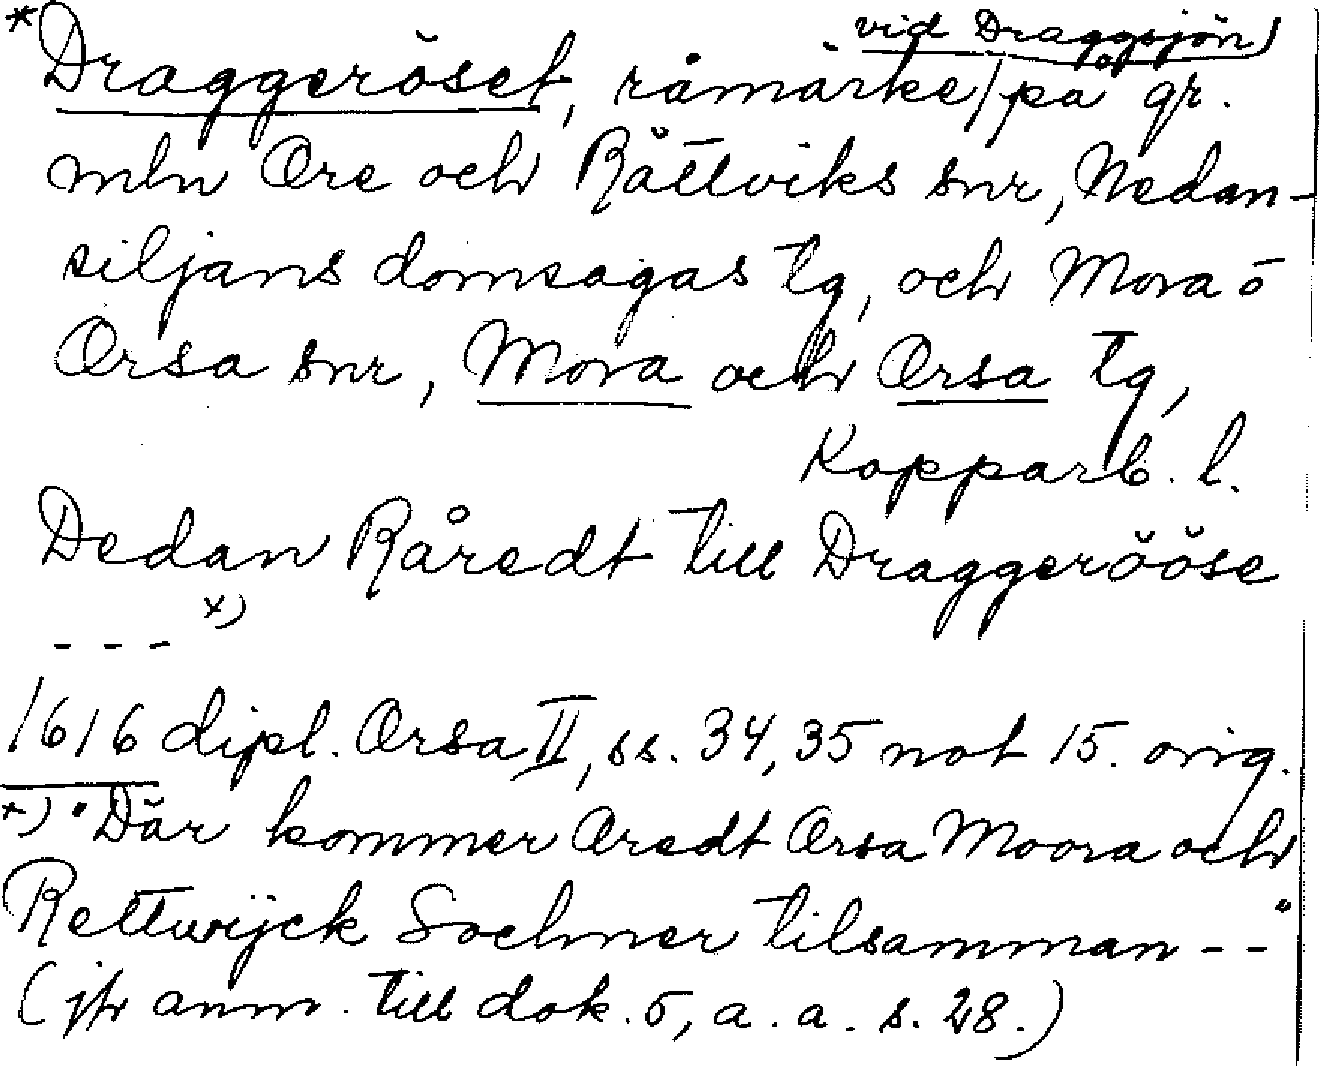 vid Draggsjön
*Draggeröset, råmärke/på gr.
mln Ore och Rättviks snr, Nedan-
siljans domsagas tg, och Mora o
Orsa snr, Mora och Orsa tg,
Kopparb. l.
Dedan Råredt till Draggerööse
- - - x)
1616 dipl. Orsa II, ss. 34, 35 not 15. orig.
x) "Där kommer Oredt Orsa Moora och
Rettwijck Sochner tilsamman - - "
(jfr anm. till dok. 5, a. a. s. 28.)